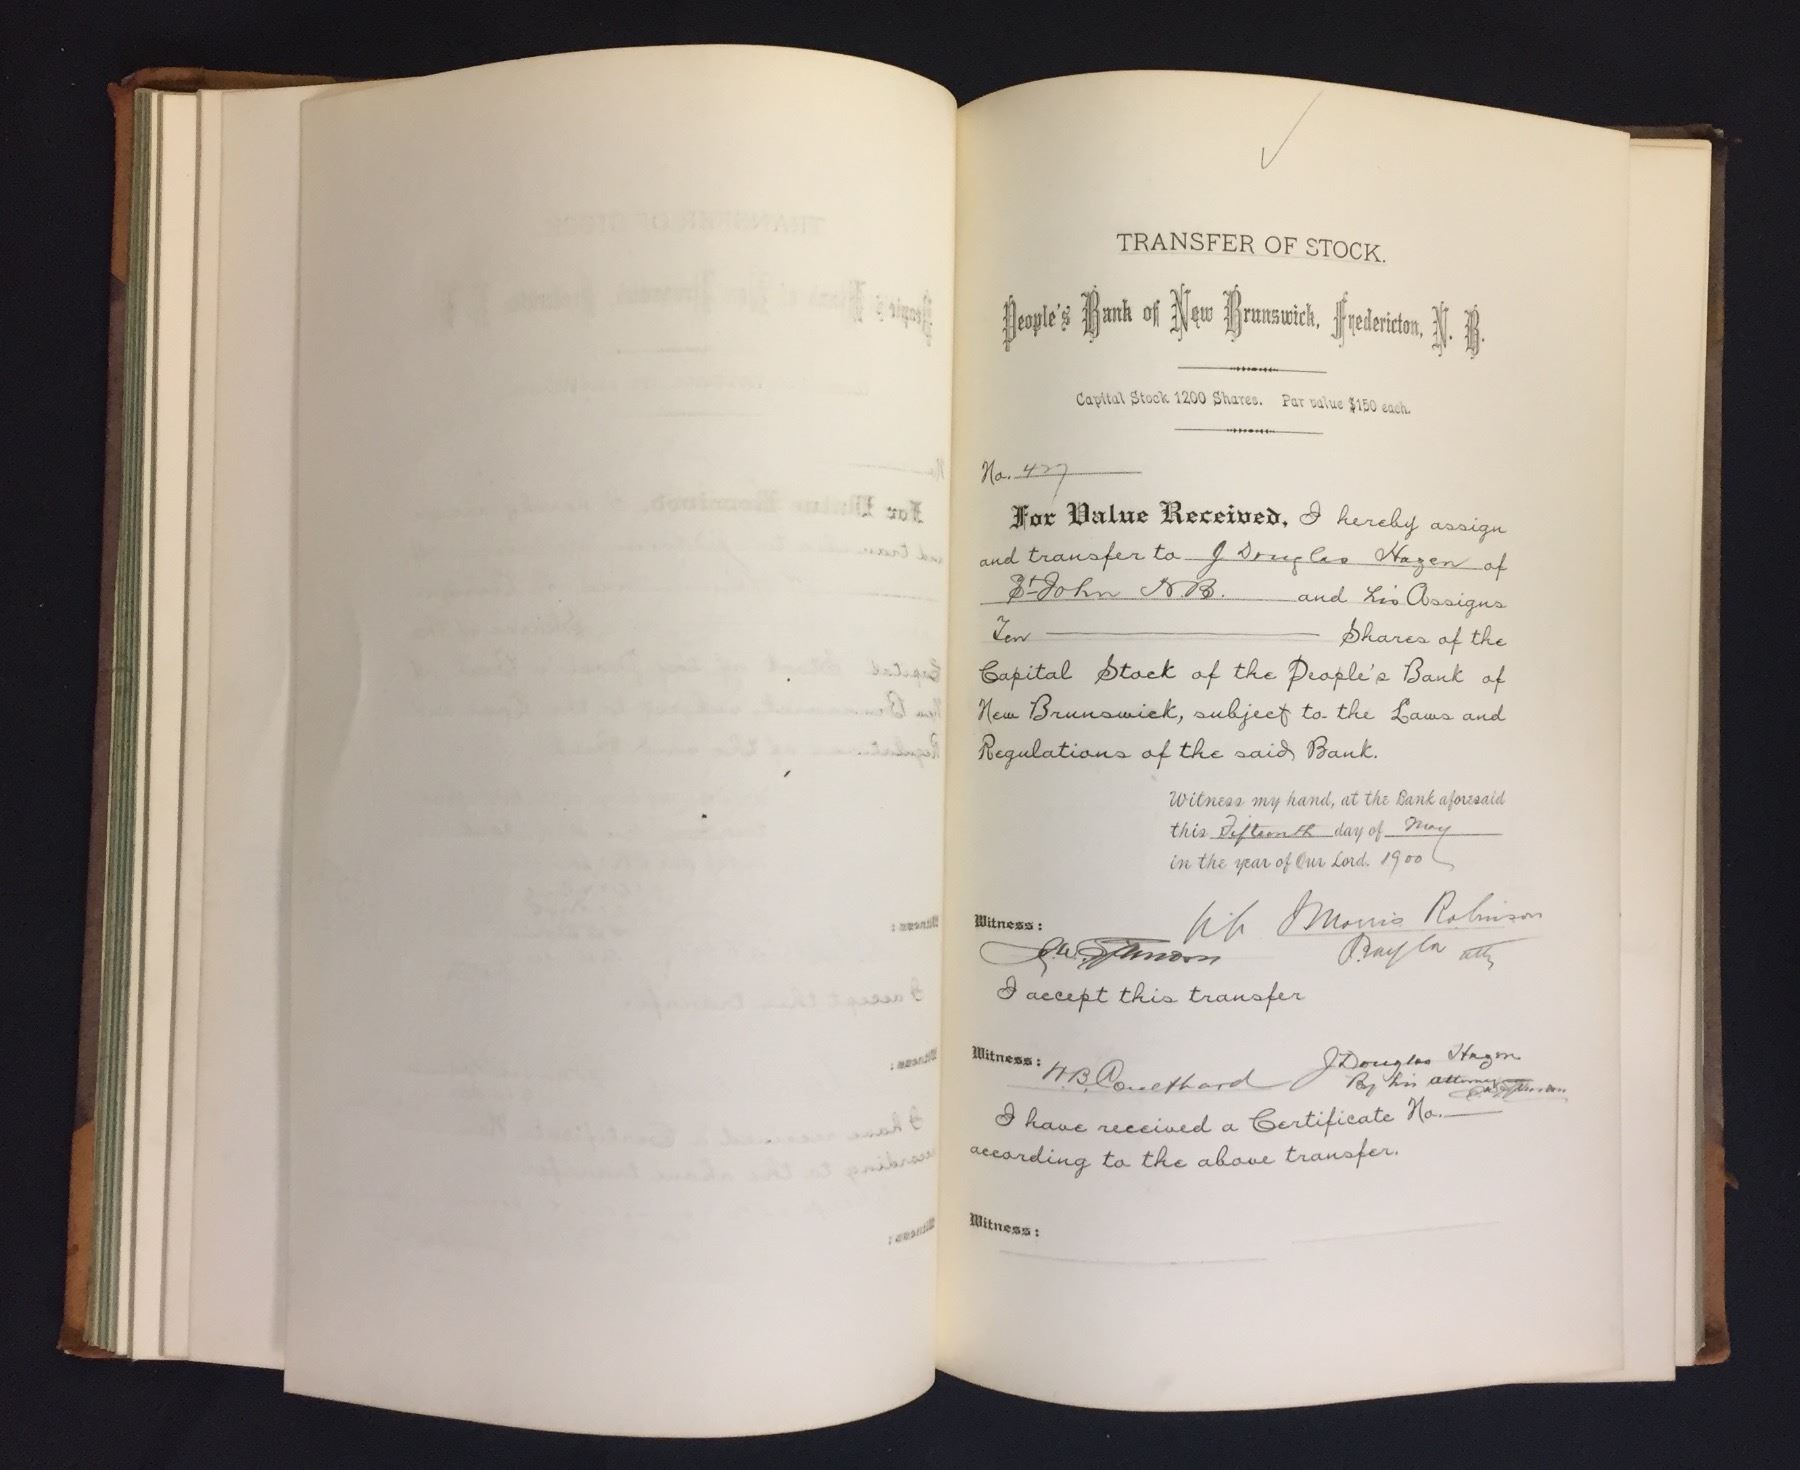 TRANSFER OF STOCK.
People's Bank of New Brunswick, Fredericton, N. B.
Capital Stock 1200 Shares. Par value $150 each.
No. 427
For Value Received, I hereby assign
and transfer to J Douglas Hazen of
St John N B. and his Assigns
Ten Shares of the
Capital Stock of the People's Bank of
New Brunswick, subject to the Laws and
Regulations of the said Bank.
Witness my hand, at the Bank aforesaid
this Fifteenth day of May
in the year of Our Lord. 1900
Witness: J Morris Robinson
atty
I accept this transfer
Witness: H.B. Coulthard J Douglas Hazen
By his attorney
I have received a Certificate No.
according to the above transfer.
Witness: